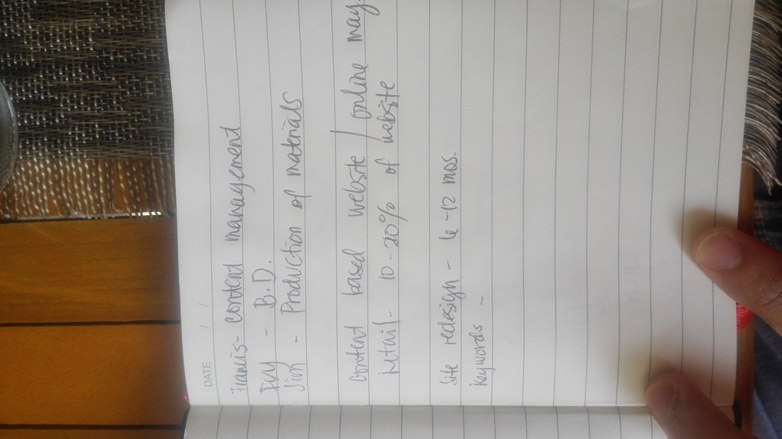 DATE / /
Francis - content management
Ivy - B.D.
Jim - Production of materials
content based website / online mag.
retail - 10-20% of website
Site redesign - 6-12 mos.
Keywords -